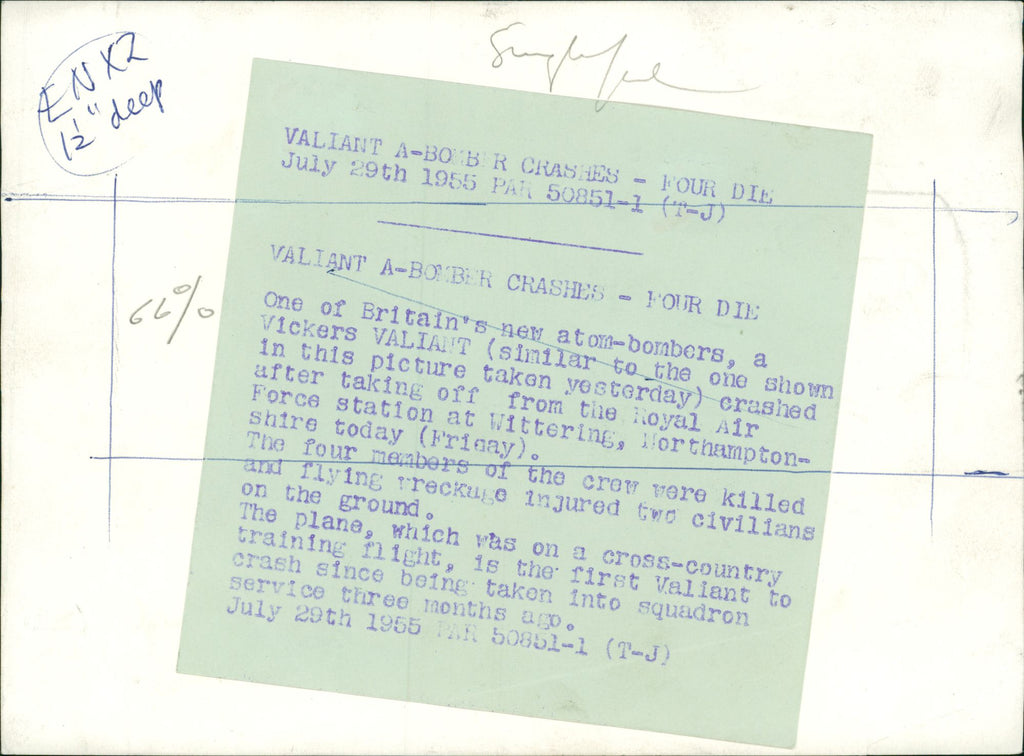 ENX2
1½" deep
VALIANT A-BOMBER CRASHES - FOUR DIE
July 29th 1955 PAR 50851-1 (T-J)
VALIANT A-BOMBER CRASHES - FOUR DIE
One of Britain's new atom-bombers, a
Vickers VALIANT (similar to the one shown
in this picture taken yesterday) crashed
after taking off from the Royal Air
Force station at Wittering, Northampton-
shire today (Friday).
The four members of the crew were killed
and flying wreckage injured two civilians
on the ground.
The plane, which was on a cross-country
training flight, is the first Valiant to
crash since being taken into squadron
service three months ago.
July 29th 1955 PAR 50851-1 (T-J)
66%